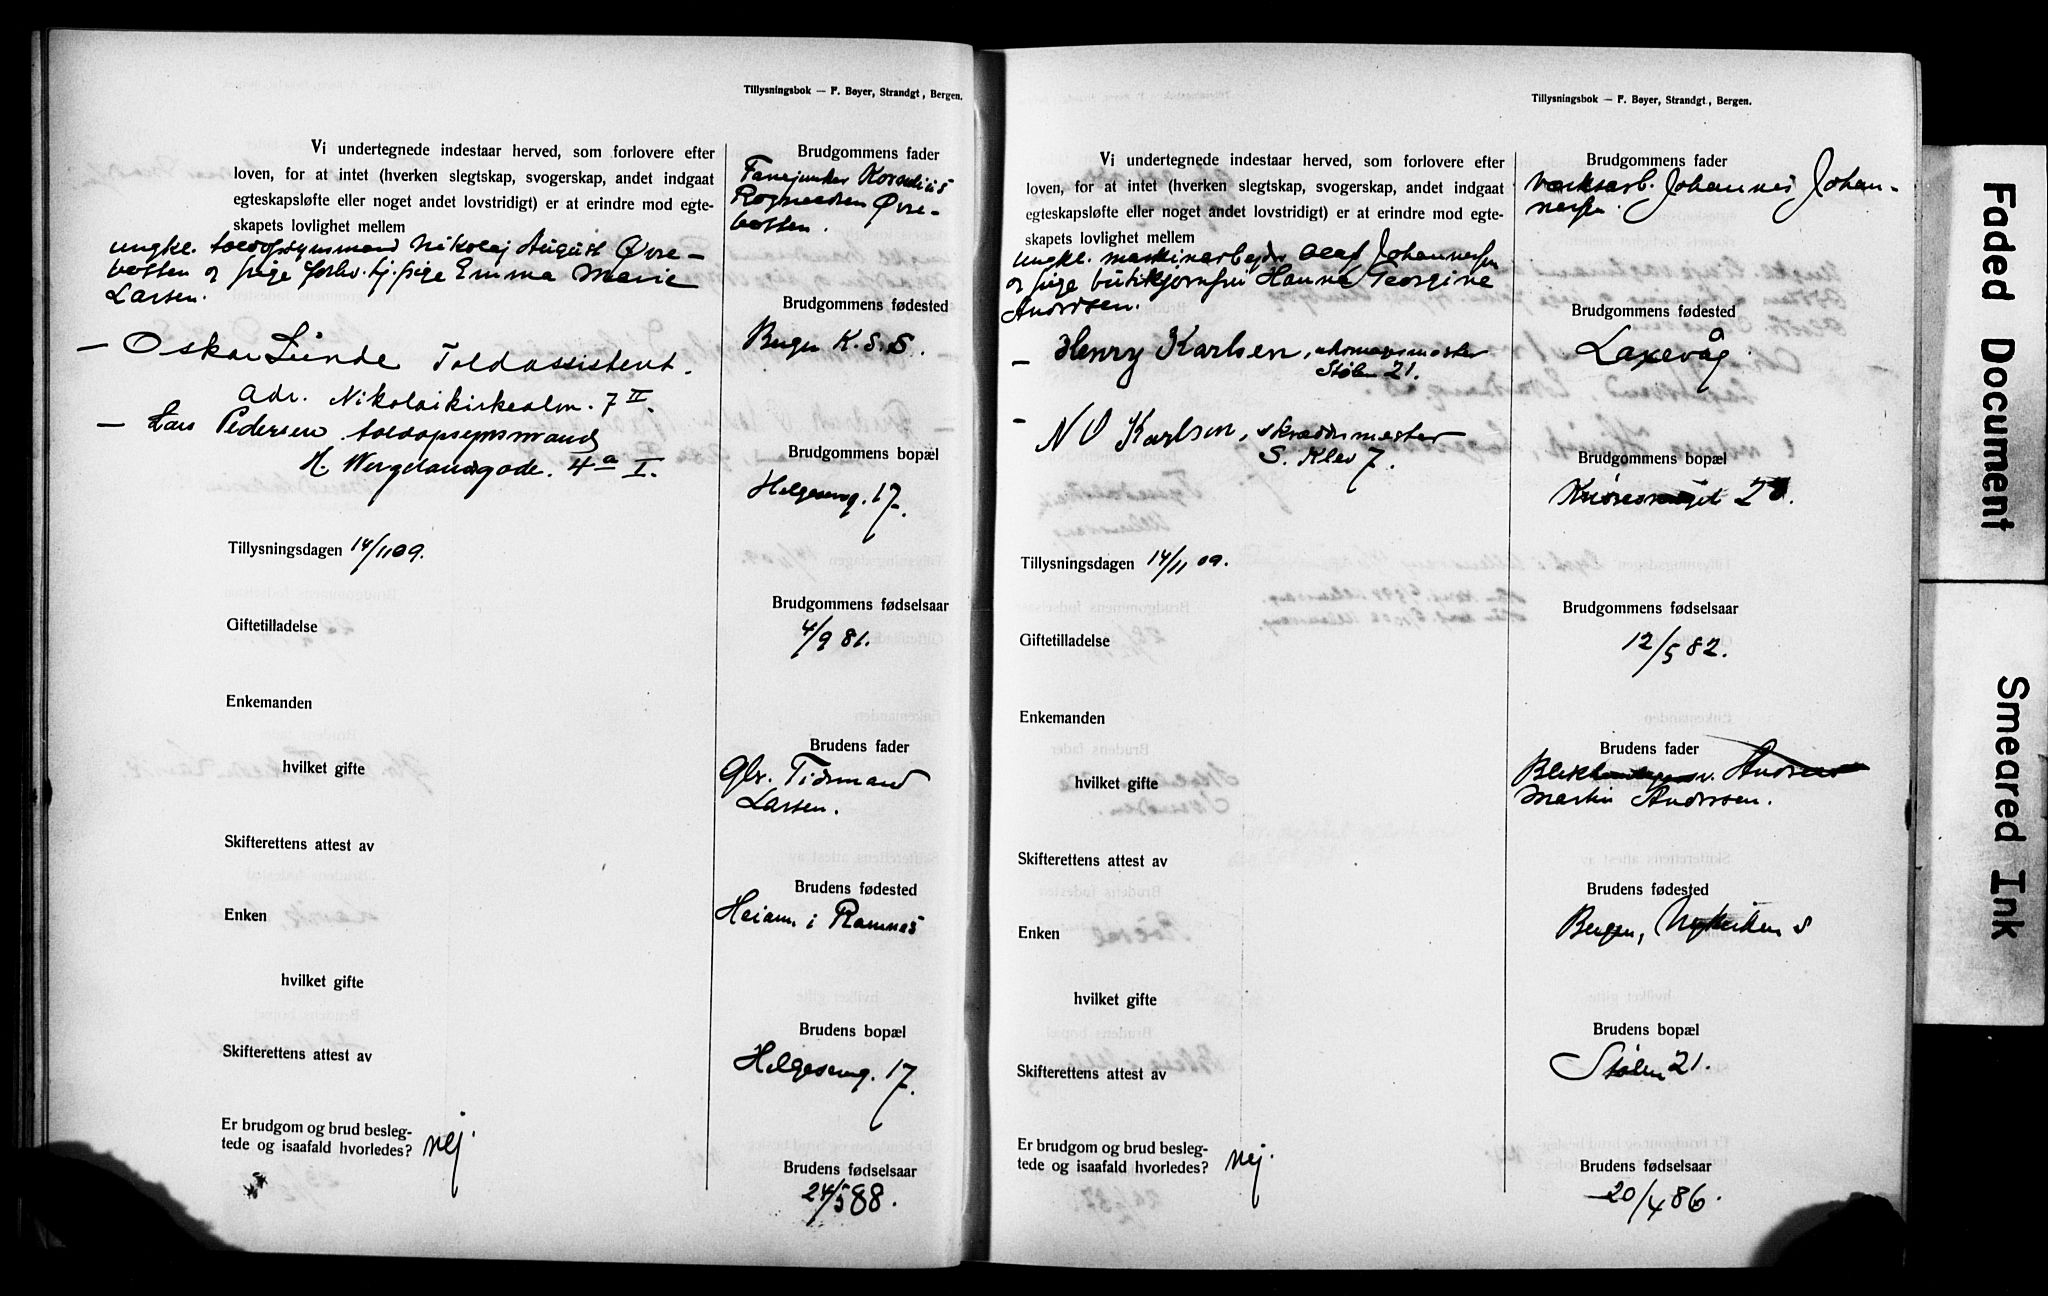 Tillysningsbok — F. Bøyer, Strandgt, Bergen.
Vi undertegnede indestaar herved, som forlovere efter
loven, for at intet (hverken slegtskap, svogerskap, andet indgaat
egteskapsløfte eller noget andet lovstridigt) er at erindre mod egte-
skapets lovlighet mellem
ungk. toldopsynsmand Nikolaj August Øvre-
botten og pige forhv. tj.pige Emma Marie
Larsen.
— Oskar Lunde Toldassistent.
adr. Nikolaikirkealm. 7 II.
— Lars Pedersen toldopsynsmand
H. Wergelandsgade. 4a I.
Tillysningsdagen 14/11 09.
Giftetilladelse
Enkemanden
hvilket gifte
Skifterettens attest av
Enken
hvilket gifte
Skifterettens attest av
Er brudgom og brud besleg-
tede og isaafald hvorledes? nej.
Brudgommens fader
Fanejunker Kornelius
Rognaldsen Øvre-
botten.
Brudgommens fødested
Bergen K.S.S.
Brudgommens bopæl
Helgesensg. 17.
Brudgommens fødselsaar
4/9 81.
Brudens fader
Gbr. Tidemand
Larsen.
Brudens fødested
i Ramnes
Brudens bopæl
Helgesensg. 17.
Brudens fødselsaar
24/5 88.
Tillysningsbok — F. Bøyer, Strandgt, Bergen.
Vi undertegnede indestaar herved, som forlovere efter
loven, for at intet (hverken slegtskap, svogerskap, andet indgaat
egteskapsløfte eller noget andet lovstridigt) er at erindre mod egte-
skapets lovlighet mellem
ungk. maskinarbejder Olaf Johannessen
og pige butikjomfru Hanna Georgine
Andersen.
— Henry Karlsen,
Stølen 21.
— N O Karlsen, skræddermester
S. Klev 7.
Tillysningsdagen 14/11 09.
Giftetilladelse
Enkemanden
hvilket gifte
Skifterettens attest av
Enken
hvilket gifte
Skifterettens attest av
Er brudgom og brud besleg-
tede og isaafald hvorledes? nej.
Brudgommens fader
verksarb. Johannes Johan-
nessen.
Brudgommens fødested
Laxevåg
Brudgommens bopæl
Brudgommens fødselsaar
12/5 82.
Brudens fader
Martin Andersen.
Brudens fødested
Bergen, Nykirken S
Brudens bopæl
Stølen 21.
Brudens fødselsaar
20/4 86.
Faded Document
Smeared Ink